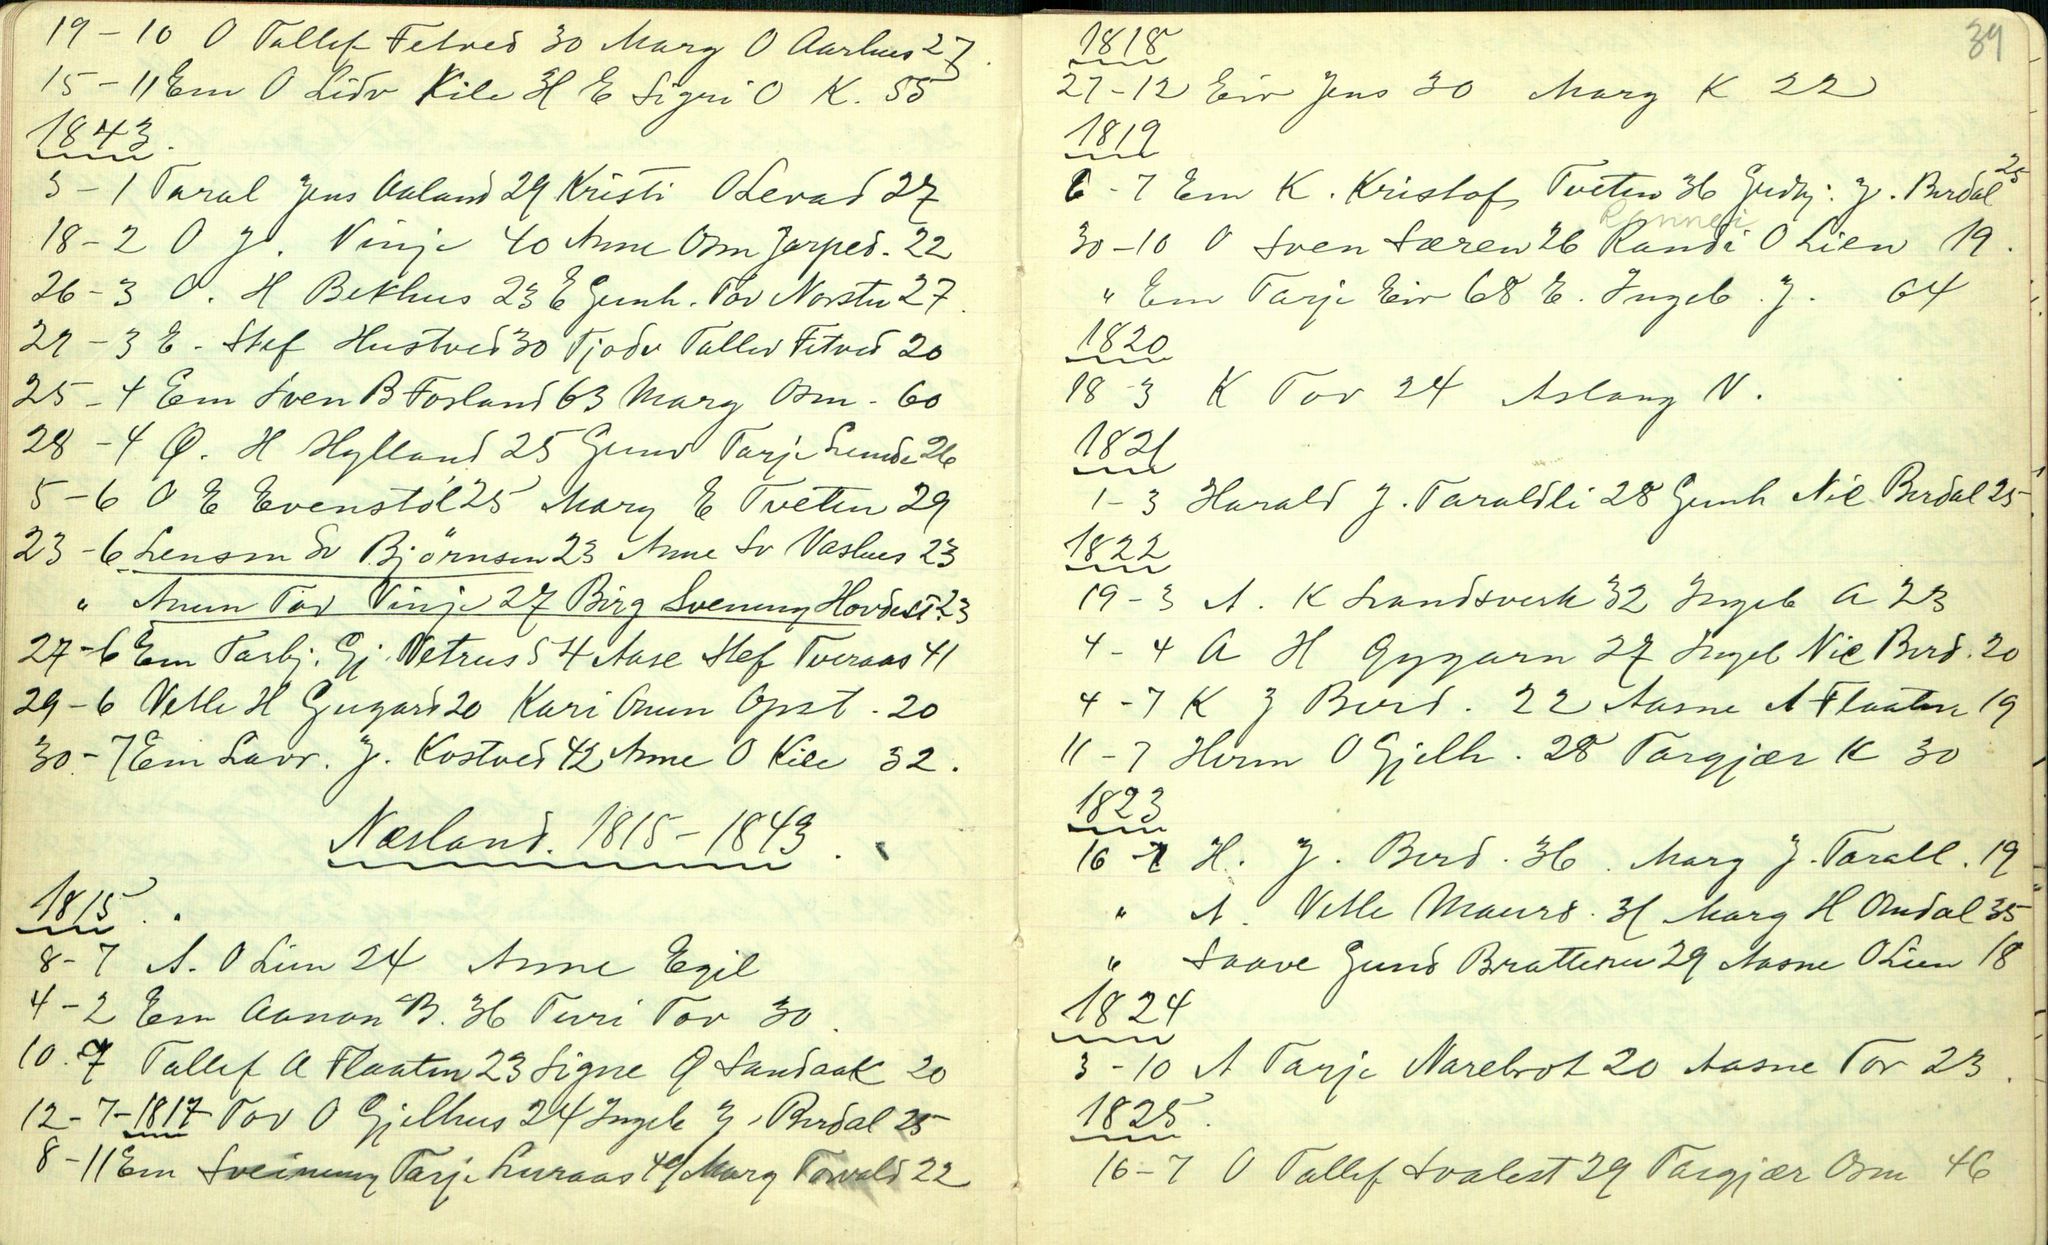 19-10 O Tallef Fetved 30 Marg O Aarhus 27.
15-11 Em O Lidv Kile H E Sigri O K. 55
1843.
3-1 Taral Jens Aaland 29 Kristi O Levad 27
18-2 O J. Vinje 40 Anne Osm Jarped. 22
26-3 O. H Bekhus 23 E Gunh. Tov Norstu 27.
27-3 E. Stef Hustved 30 Tjodv Tallev Fetved 20
25-4 Em Sven B Forland 63 Marg Osm - 60
28-4 O. H Hylland 25 Gunv Tarje Lunde 26
5-6 O E Evenstöl 25 Marg E Tveten 29
23-6 Lensm Sv Björnsen 23 Anne Sv Vashus 23
" Anun Tov Vinje 27 Birg Svenung Hovdest. 23
27-6 Em Torbj. Gj. Vetrus 54 Aase Stef Tveraas 41
29-6 Vetle H Gugard 20 Kari Anun Opst. 20
30-7 Em Lavr. J. Kostved 42 Anne O Kile 32.
Næsland. 1815-1843.
1815.
8-7 A. O Lien 24 Anne Egil
4-2 Em Aanon B. 36 Turi Tov 30.
10.7 Tallef A Flaaten 23 Signe O Sandaak 20
12-7-1817 Tov O Gjelhus 24 Ingeb J. Berdal 25
8-11 Em Sveinung Tarje Luraas 49 Marg Torvald 22
39
1818
27-12 Eiv Jens 30 Marg K 22
1819
6-7 Em K. Kristof Tveten 36 Gudbj. J. Berdal 25
Rønnei
30-10 O Sven Særen 26 Randi O Lien 19.
" Em Tarje Eiv 68 E. Ingeb. J. 64
1820
18-3 K Tov 24 Aslaug N.
1821
1-3 Harald J. Taraldli 28 Gunh Nic Berdal 25
1822
19-3 A. K Landsverk 32 Ingeb A 23
4-4 A H Gygarn 27 Ingeb Nic Berd. 20
4-7 K J Berd. 22 Aasne A Flaaten 19
11-7 Herm O Gjelh. 28 Torgjær K 30
1823
16-7 H. J. Berd. 36. Marg J. Tarall. 19
" A. Vetle Maurs. 31 Marg H Omdal 35
" Saave Gunv Bratterud 29 Aasne O Lien 18
1824
3-10 A Tarje Narebrot 20 Aasne Tov 23.
1825.
16-7 O Tallef Svalest 29 Torgjær Osm 46